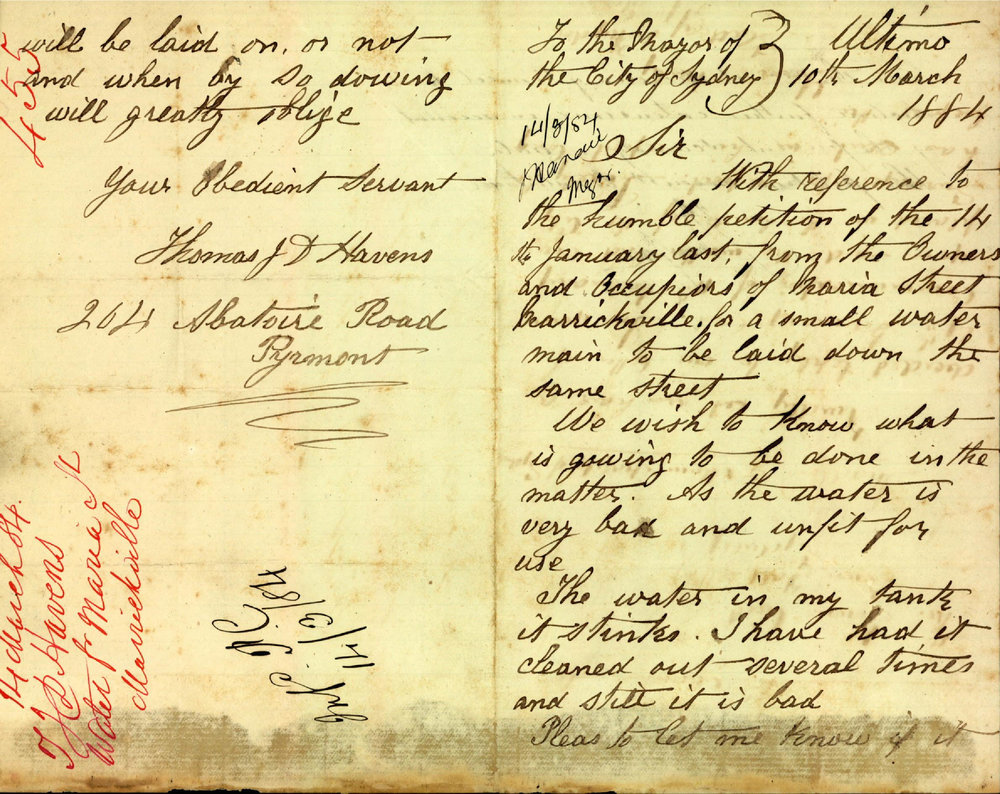 To the Mayor of the City of Sydney
Ultimo
10th March
1884
14/3/84
Mayor.
Sir
With reference to
the humble petition of the 14
th January last, from the Owners
and Occupiors of Maria Street
Marrickville. for a small water
main to be laid down the
same street
We wish to know what
is gowing to be done in the
matter. As the water is
very bad and unfit for
use
The water in my tank
it stinks. I have had it
cleaned out several times
and still it is bad
Pleas to let me know if it
will be laid on, or not
and when by so dowing
will greatly oblige
Your Obedient Servant
Thomas J D Havens
264 Abatoire Road
Pyrmont
455
14 March 84
T J D Havens
Water f Maria St
Marrickville
14/3/84